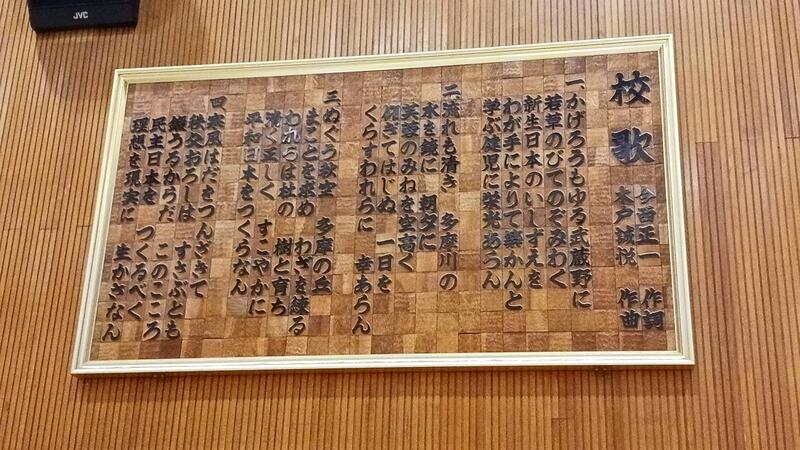 JVC
校歌
正一 作詞
木戸 作曲
一、かげろうもゆる武蔵野に
若草のびてのぞみわく
新生日本のいしずえを
わが手によりて築かんと
学ぶ健児に栄光あらん
二、流れも清き 多摩川の
水を鏡に 朝夕に
芙蓉のみねを空高く
仰ぎてはじぬ 一日を
くらすわれらに 幸あらん
三、ぬぐう秋空 多摩の丘
まことを求め わざを練る
われらは杜の 樹と育ち
清く正しく すこやかに
平和日本をつくらなん
四、寒風はだをつんざきて
秩父おろしは すさぶとも
鍛うるからだ このこころ
民主日本を つくるべく
理想を現実に 生かさなん